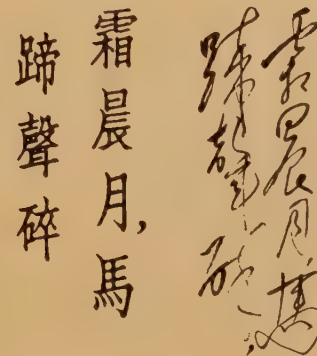 霜晨月,馬
蹄聲碎,
霜晨月,馬
蹄聲碎